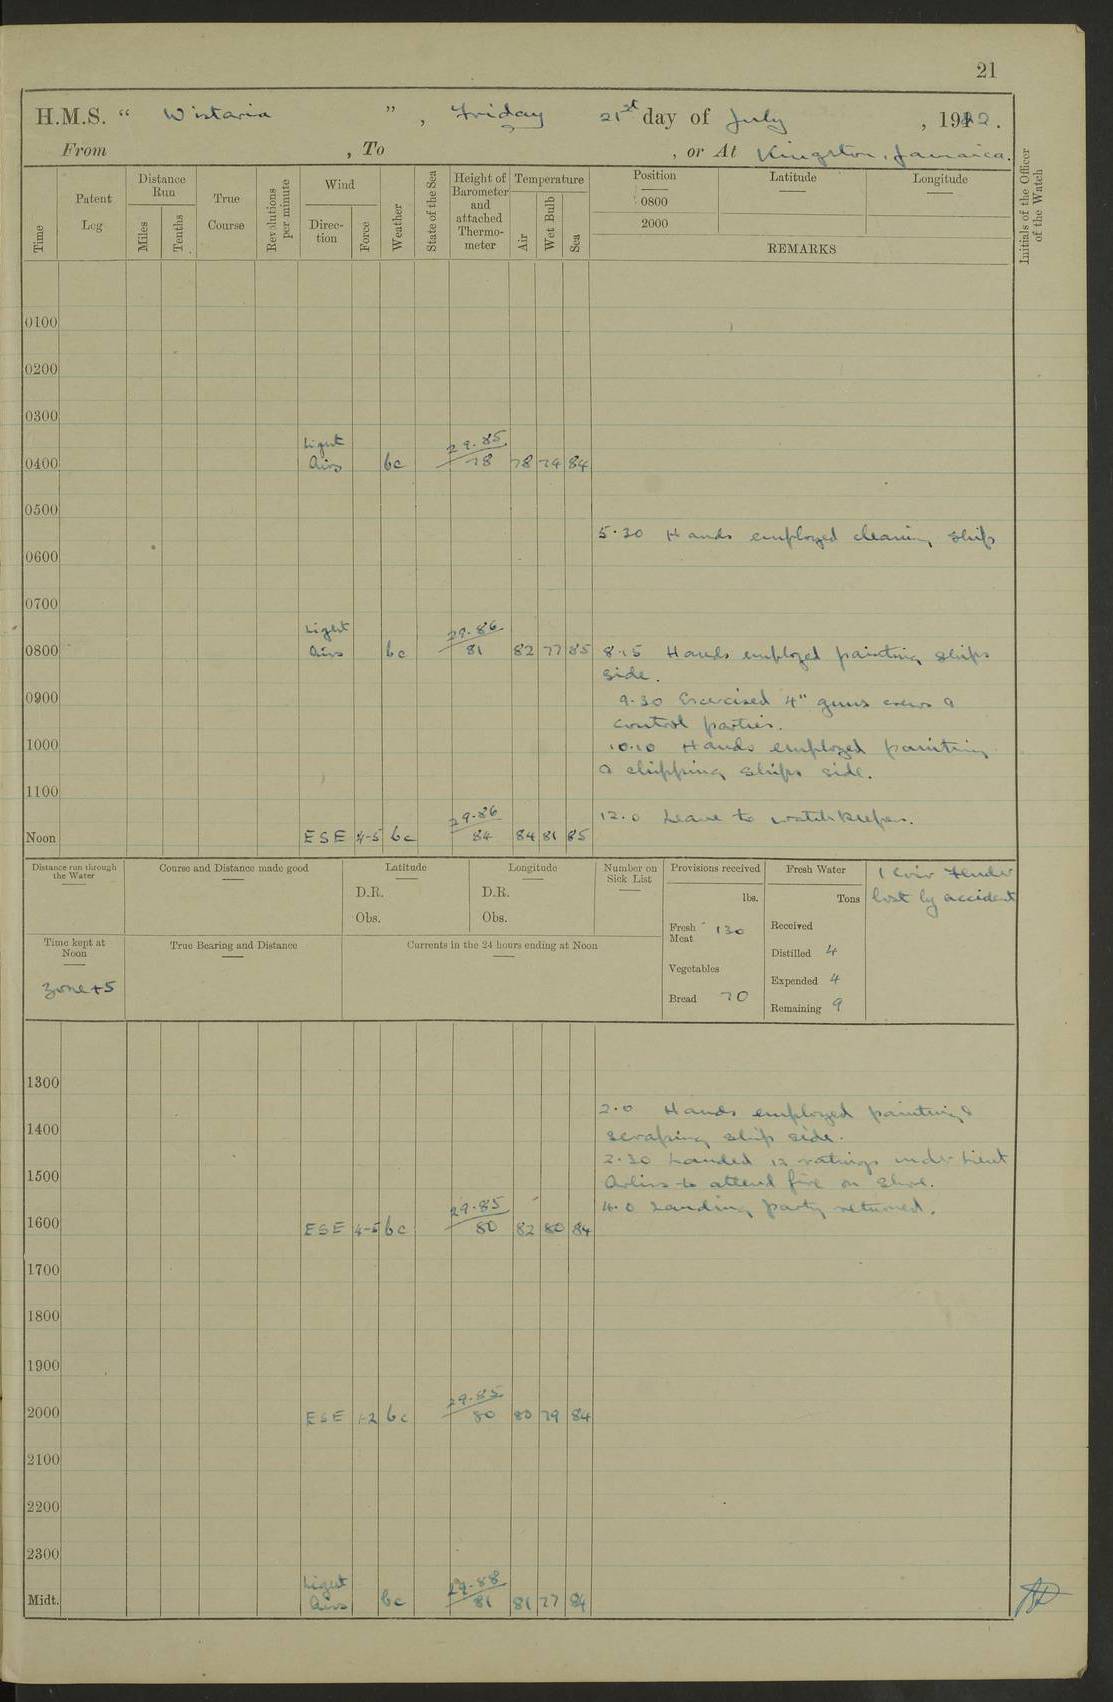 21
H.M.S. “ Wistaria ” , Friday 21st day of July , 1922.
From , To , or At Kingston, Jamaica.
Time
Patent Log
Distance Run
Miles
Tenths
True Course
Revolutions per minute
Wind
Direction
Force
Weather
State of the Sea
Height of Barometer and attached Thermometer
Temperature
Air
Wet Bulb
Sea
Position
0800
2000
Latitude
Longitude
REMARKS
Initials of the Officer of the Watch
0100
0200
0300
Light 29.85
0400 Airs bc 78 78 74 84
0500
5.30 Hands employed cleaning ship
0600
0700
Light 29.86
0800 Airs bc 81 82 77 85 8.15 Hands employed painting ships
side.
0900 9.30 Exercised 4" guns crews &
control parties.
1000 10.10 Hands employed painting
& chipping ships side.
1100
29.86 12.0 Leave to watchkeepers.
Noon ESE 4-5 bc 84 84 81 85
Distance run through the Water
Course and Distance made good
Latitude
D.R.
Obs.
Longitude
D.R.
Obs.
Number on Sick List
Provisions received
lbs.
Fresh Meat 130
Vegetables
Bread 70
Fresh Water
Tons
Received
Distilled 4
Expended 4
Remaining 9
1 Coir Fender
lost by accident
Time kept at Noon
Zone +5
True Bearing and Distance
Currents in the 24 hours ending at Noon
1300
2.0 Hands employed painting &
1400
scraping ship side.
2.30 Landed 12 ratings under Lieut
1500
to attend fire on shore.
29.85 4.0 Landing party returned.
1600 ESE 4-5 bc 80 82 80 84
1700
1800
1900
29.85
2000 ESE 1-2 bc 80 80 79 84
2100
2200
2300
Light 29.88
Midt. Airs bc 81 81 77 84